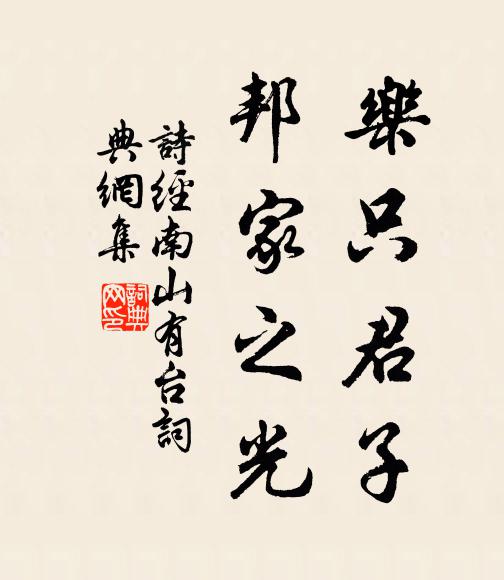 樂只君子
邦家之光
詩經南山有台詞
典網集
詞典網印